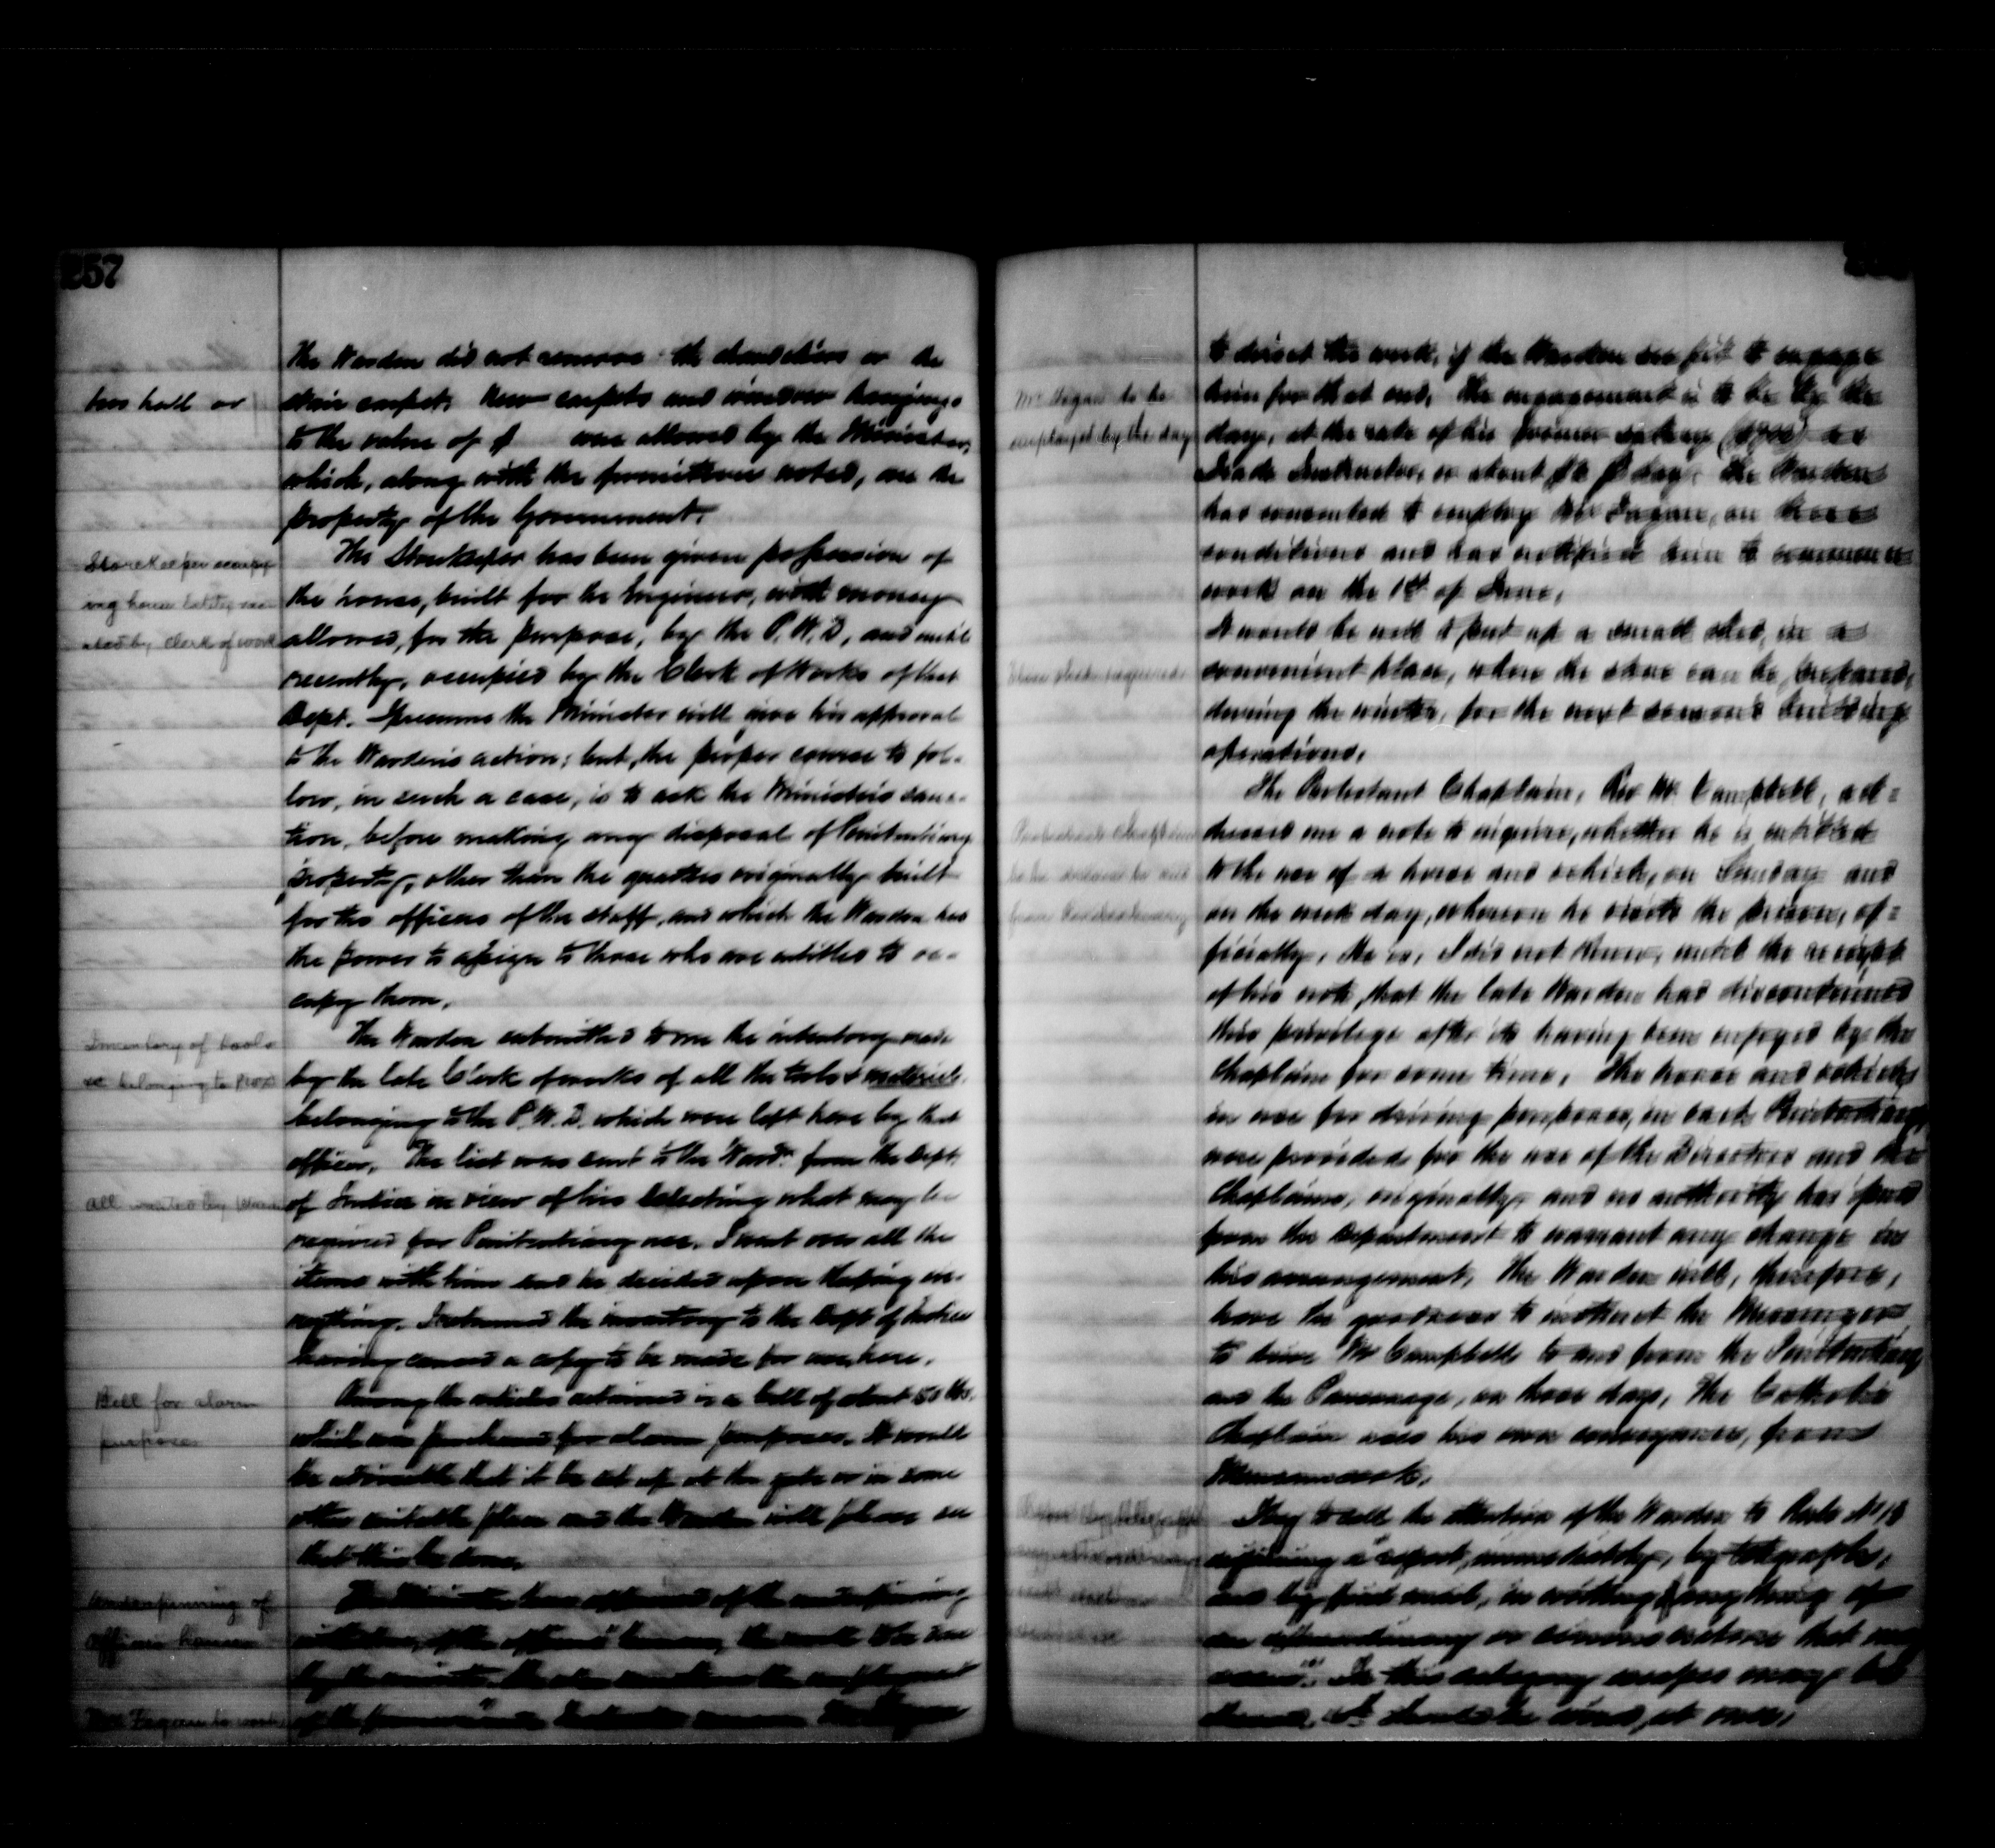 257
The Warden did not remove the chandeliers or the
his hall or
stair carpet. New carpets and window hangings
to the value of $ was allowed by the Minister,
which, along with the furniture noted, are the
property of the Government.
Storekeeper occupy-
ing house lately
by Clerk of works
The Storekeeper has been given possession of
the house, built for the Engineer, with money
allowed, for the purpose, by the P.W.D, and until
recently, occupied by the Clerk of Works of that
Dept. I presume the Minister will give his approval
to the Warden's action; but, the proper course to fol-
low, in such a case, is to ask the Minister's sanc-
tion, before making any disposal of Penitentiary
property, other than the quarters originally built
for the officers of the staff, and which the Warden has
the power to assign to those who are entitled to oc-
cupy them.
Inventory of tools
&c belonging to
The Warden submitted to me the inventory made
by the late Clerk of works of all the tools & materials
belonging to the P.W.D. which were left here by that
officer. The list was sent to the Ward.n from the Dept.
All wanted by
of Justice in view of his selecting what may be
required for Penitentiary use. I went over all the
items with him and he decided upon keeping ev-
erything. I returned the inventory to the Dept of Justice
having caused a copy to be made for use, here.
Bell for alarm
purposes
Among the articles retained is a bell of about 50 lbs.
which was purchased for alarm purposes. It would
be advisable that it be set up at the gate or in some
other suitable place and the Warden will please see
that this be done.
Underpinning of
Officers houses
The Minister have approved of the underpinning
of the officers' houses, the work to be done
by the
of the
Mr Fagan to work
to direct the work, if the Warden see fit to engage
Mr Fagan to be
employed by the day
him for that end. The engagement is to be by the
day, at the rate of his former salary as
Trade Instructor, or about $2 day. The Warden
has consented to employ Mr Fagan, on these
conditions and has notified him to commence
work on the 1st of June.
It would be well to put up a small shed, in a
Stone shed required
convenient place, where the stone can be prepared,
during the winter, for the next season's building
operations.
The Protestant Chaplain, Rev Mr Campbell, ad=
Protestant Chaplain
to be driven to and
from Penitentiary
dressed me a note to inquire, whether he is entitled
to the use of a horse and vehicle, on Sunday and
on the week day, whereon he visits the prison, of=
ficially. He is, I did not know, until the receipt
of his note, that the late Warden had discontinued
this privilege after its having been enjoyed by the
Chaplain for some time. The horse and vehicle
in use for driving purposes, in each Penitentiary,
were provided for the use of the Directors and the
Chaplains, originally, and no authority has issued
from the Department to warrant any change in
this arrangement. The Warden will, therefore,
have the goodness to instruct the Messenger
to drive Mr Campbell to and from the Penitentiary
and the Parsonage, on those days. The Catholic
Chaplain uses his own conveyance, from
Memramcook.
I beg to call the attention of the Warden to Rule
requiring a "report, immediately, by telegraph,
and by first mail, in writing, of any thing of
an extraordinary or serious nature that may
occur". In this category escapes may be
classed. It should be wired, at once,